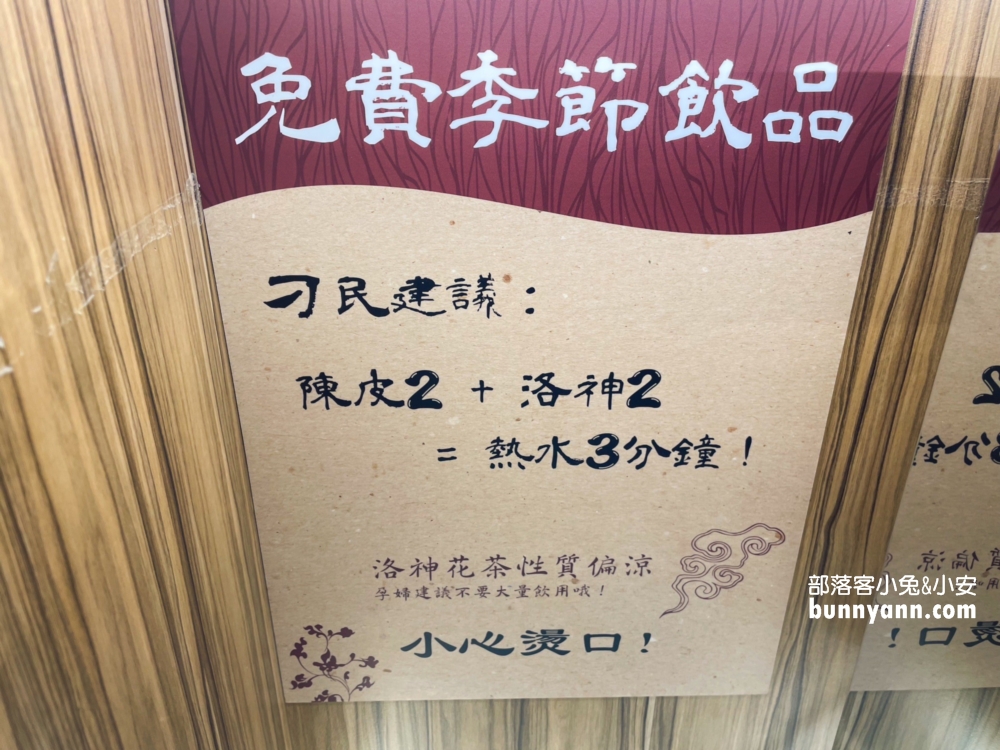 免費季節飲品
刁民建議：
陳皮2 + 洛神2
= 熱水3分鐘！
洛神花茶性質偏涼
孕婦建議不要大量飲用哦！
小心燙口！
部落客小兔&小安
bunnyann.com